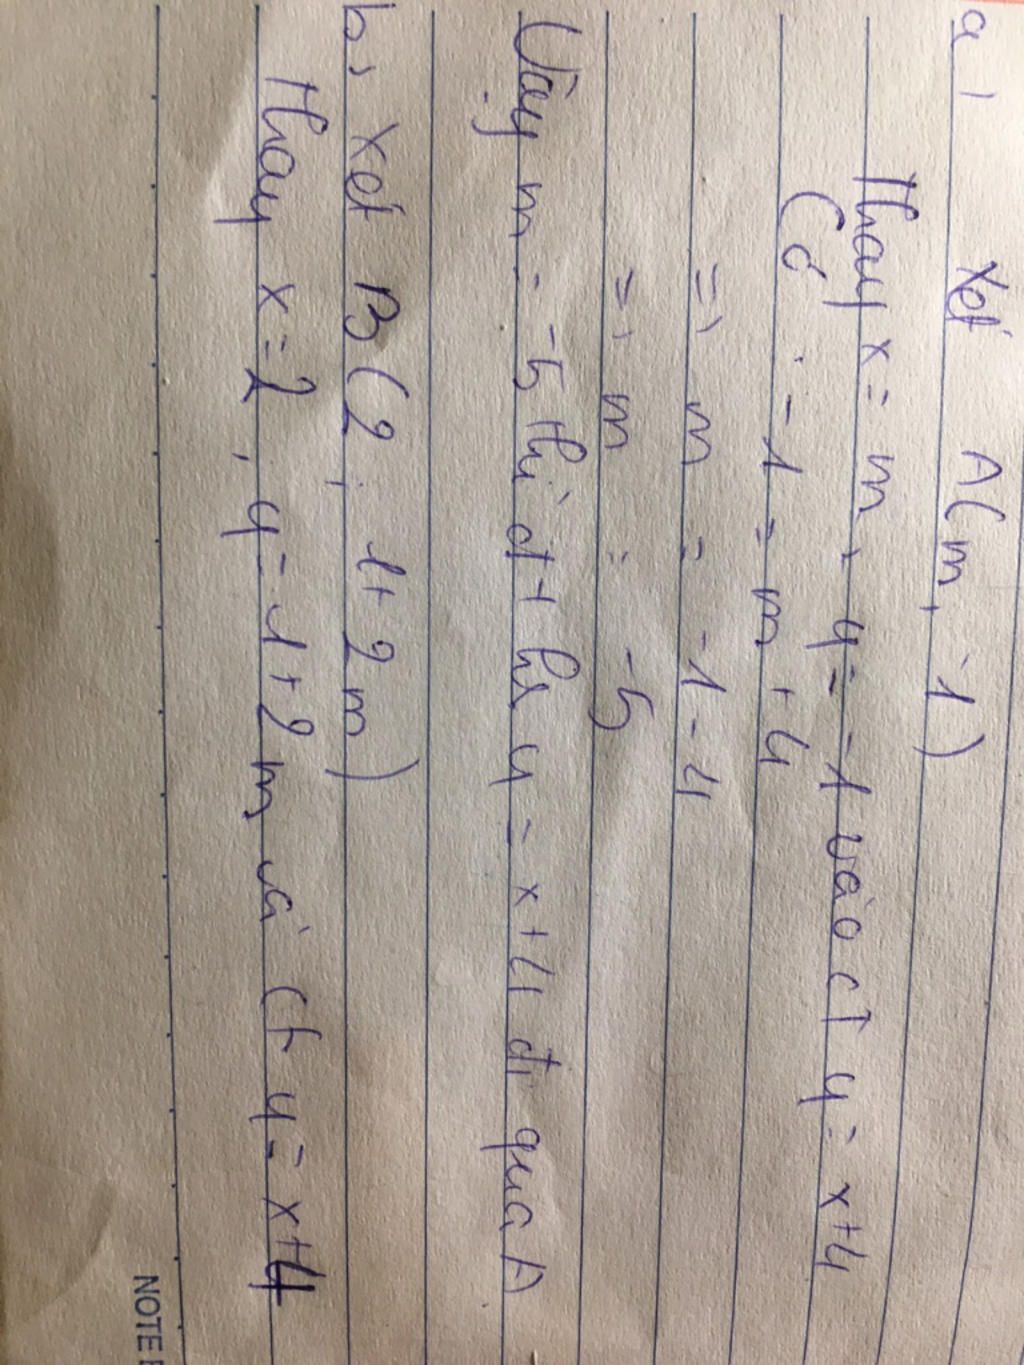 a,
Xét A(m, -1)
Thay x = m, y = -1 vào CT y = x+4
Có : -1 = m + 4
=> m = -1 - 4
=> m = -5
Vậy m = -5 thì đt hs y = x+4 đi qua A
b, Xét B(2; 1+2m)
Thay x=2, y=1+2m và Ct y=x+4
NOTE